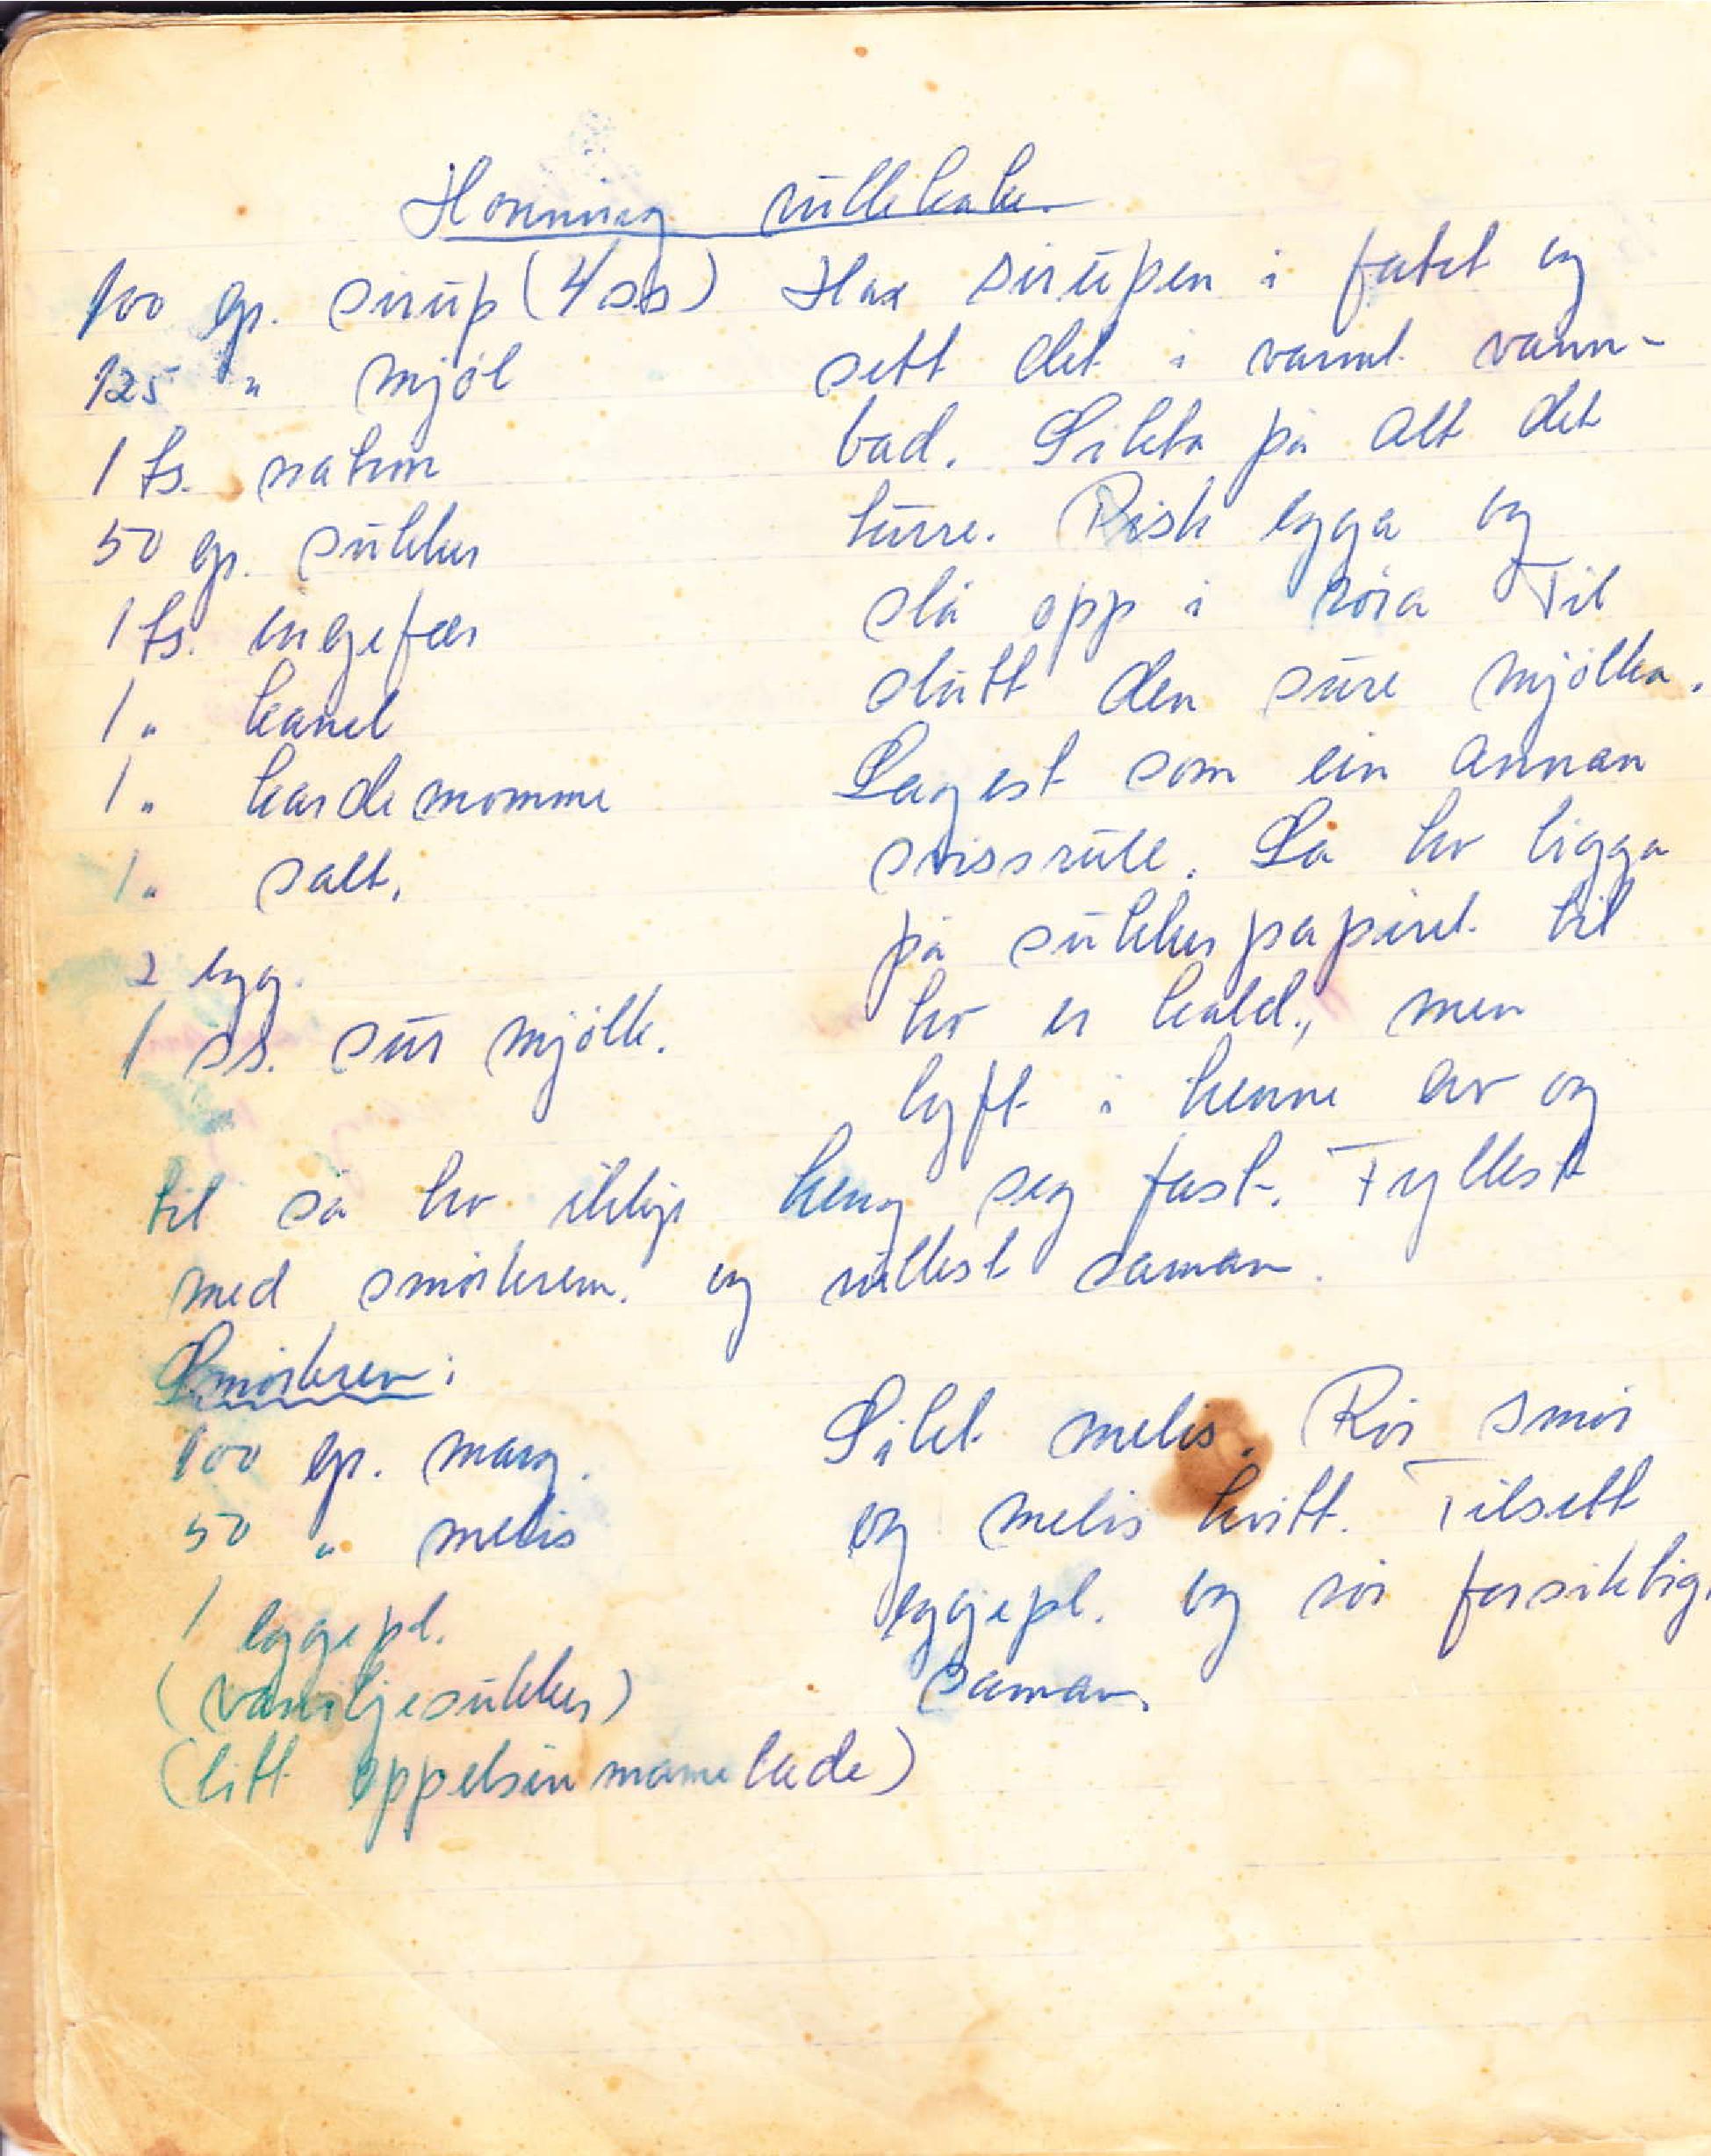 Honning rullekake.
100 gr. sirup (4 ss)
125 " mjöl
1 ts. natron
50 gr. sukker
1 ts. ingefær
1 " kanel
1 " kardemomme
1 " salt.
2 egg.
1 ss. sur mjölk.
Hax sirupen i fatet og
sett det i varmt vann-
bad. Sikta på alt det
turre. Pisk egga og
slå opp i röra Til
slutt den sure mjölka.
Lagest som ein annan
swissrull. La ho ligga
på sukkerpapiret til
ho er kald, men
lyft i henne av og
til så ho ikkje heng seg fast. Fyllest
med smörkrem. og rullest saman.
Smörkrem:
100 gr. marg.
50 " melis
1 eggepl.
(vaniljesukker)
(litt appelsinmamelade)
Sikt melis. Rör smör
og melis kvitt. Tilsett
eggjepl. og rör forsiktig
saman.